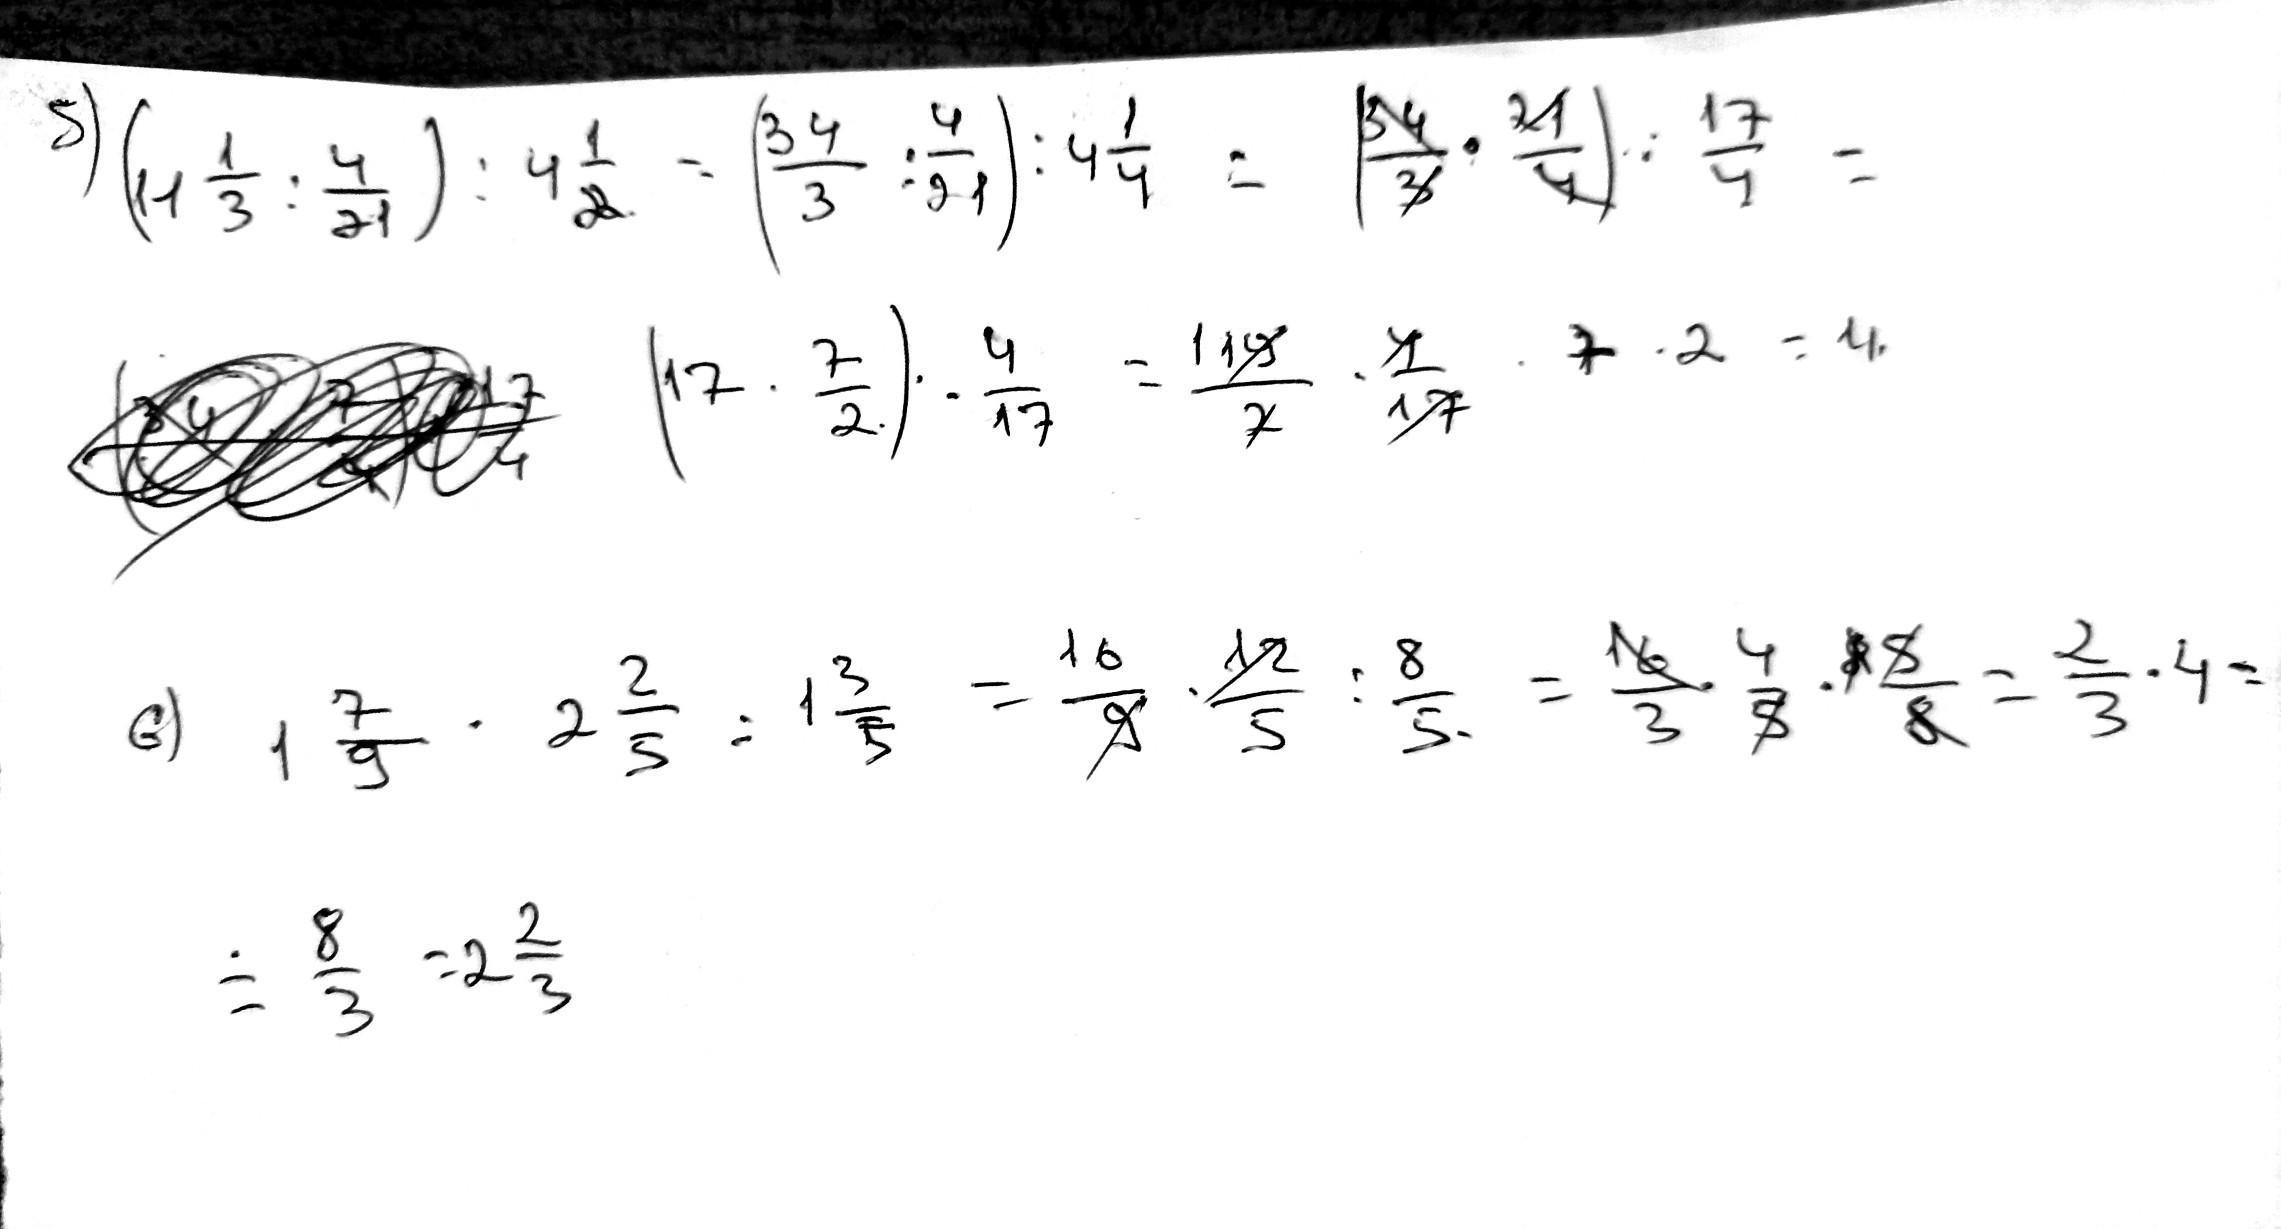 5) (11 1/3 : 4/21) : 4 1/2 = (34/3 : 4/21) : 4 1/4 = (34/3 · 21/4) : 17/4 =
(17 · 7/2) · 4/17 = 119/2 · 4/17 · 7 · 2 = 4.
6) 1 7/9 · 2 2/5 : 1 3/5 = 16/9 · 12/5 : 8/5 = 16/3 · 4/5 · 5/8 = 2/3 · 4 =
= 8/3 = 2 2/3